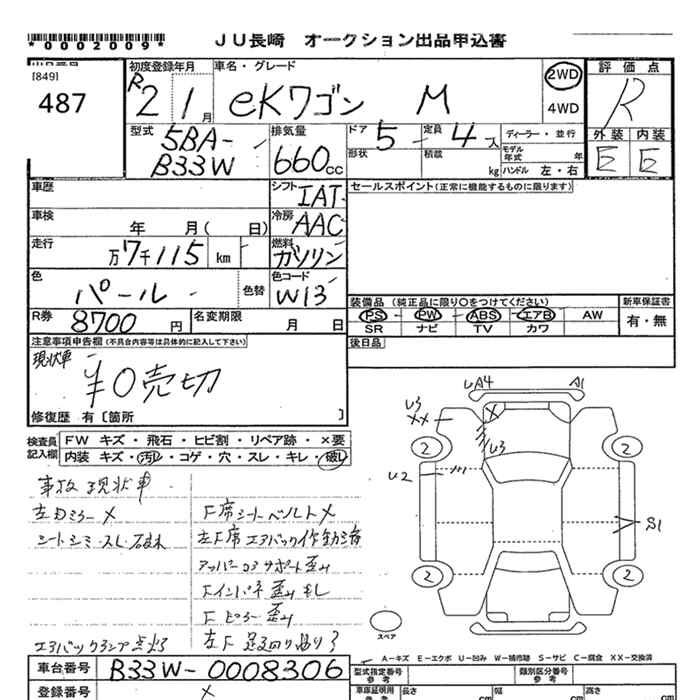 *0002009*
JU長崎 オークション出品申込書
[849]
487
初度登録年月
R2 1月
車名・グレード
eKワゴン M
2WD
4WD
評価点
R
外装 内装
E E
型式
5BA-
B33W
排気量
660cc
ドア 5
定員 4人
形状
積載 kg
ディーラー・並行
モデル年式 年
ハンドル 左・右
車歴
シフト IAT
セールスポイント(正常に機能するものに限ります)
車検 年 月( 日)
冷房 AAC
走行 万7千115 km
燃料 ガソリン
色 パール
色替
色コード W13
R券 8700円
名変期限 月 日
装備品(純正品に限り○をつけてください)
新車保証書
PS PW ABS エアB AW
有・無
SR ナビ TV カワ
後日品
注意事項申告欄(不具合内容等は具体的に記入して下さい)
現状車
¥0売切
修復歴 有〔箇所 〕
検査員記入欄
FW キズ・飛石・ヒビ割・リペア跡・×要
内装 キズ・汚れ・コゲ・穴・スレ・キレ・破レ
事故現状車
左ドミラー ×
シートシミ・スレ・破れ
エアバックランプ点灯
F席シートベルト×
左F席エアバック作動済
アッパーコアサポート歪ミ
Fインパネ歪ミ キレ
Fピラー歪ミ
左F足廻り曲り
UA4
A1
U3
XX
X
U3
U2
S1
2
2
2
2
スペア
A-キズ E-エクボ U-凹み W-補修跡 S-サビ C-腐食 XX-交換済
車台番号 B33W-0008306
型式指定番号 参考
類別区分番号 参考
登録番号 ×
車庫証明用 参考
長さ cm
幅 cm
高さ cm